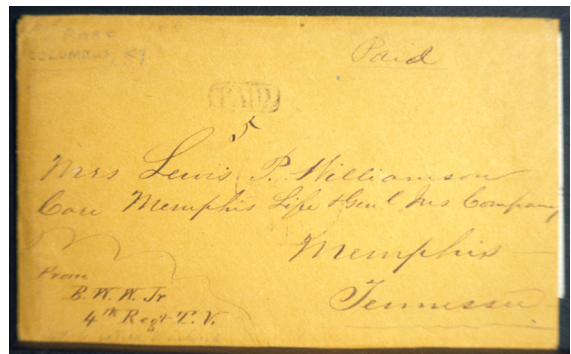 RARE
COLUMBUS, KY.
Paid
PAID
5
Mrs Lewis P. Williamson
Care Memphis Life & Genl Ins Company
Memphis
Tennessee
From
B. W. W. Jr
4th Regt T. V.